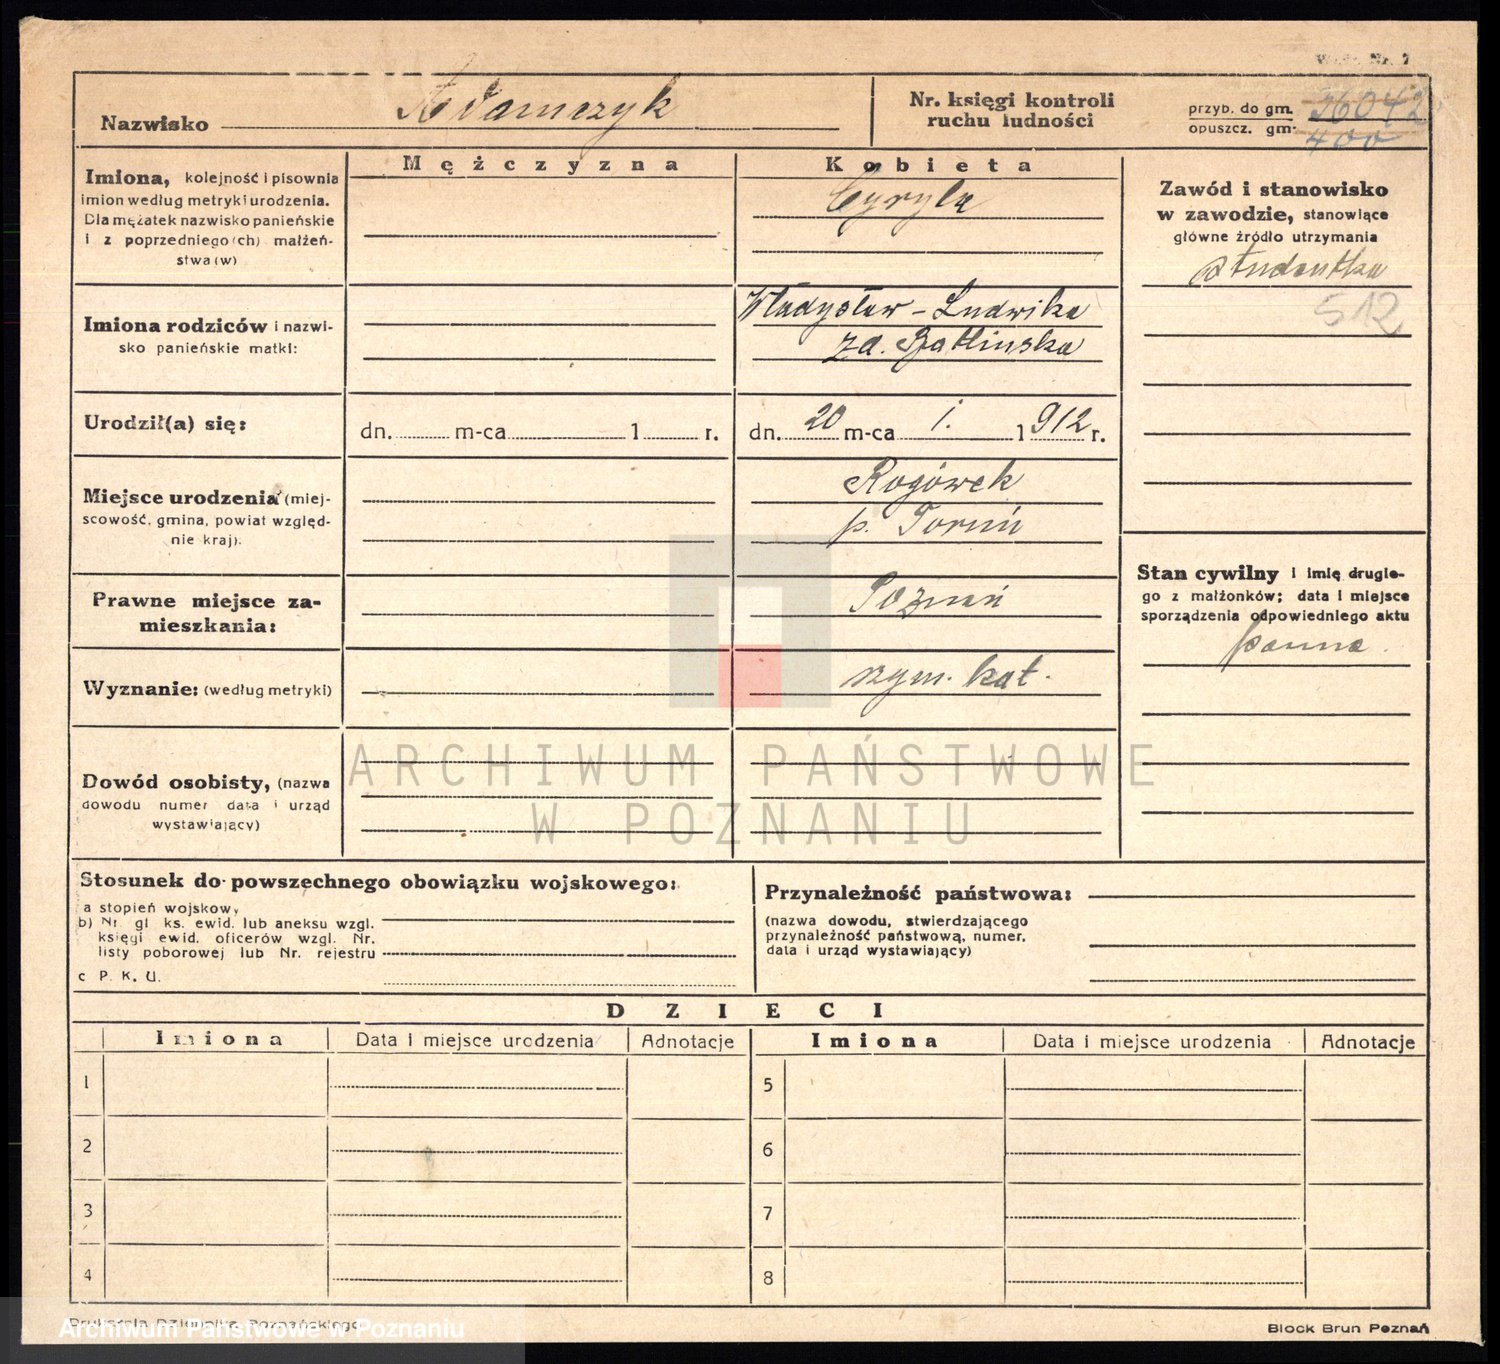 Adamczyk
Nazwisko
Nr. księgi kontroli
ruchu ludności
przyb. do gm. 36042
opuszcz. gm. 400
Imiona, kolejność i pisownia
imion według metryki urodzenia.
Dla mężatek nazwisko panieńskie
i z poprzedniego (ch) małżeń-
stwa (w)
Mężczyzna
Kobieta
Cyryla
Zawód i stanowisko
w zawodzie, stanowiące
główne źródło utrzymania
studentka
512
Imiona rodziców i nazwi-
sko panieńskie matki:
Władysław - Ludwika
zd.
Urodził(a) się:
dn. m-ca 1 r.
dn. 20 m-ca 1. 1912 r.
Miejsce urodzenia (miej-
scowość, gmina, powiat względ-
nie kraj).
Rogówek
p. Toruń
Stan cywilny i imię drugie-
go z małżonków; data i miejsce
sporządzenia odpowiedniego aktu
panna.
Prawne miejsce za-
mieszkania:
Poznań
Wyznanie: (według metryki)
rzym. kat.
Dowód osobisty, (nazwa
dowodu numer data i urząd
wystawiający)
ARCHIWUM PAŃSTWOWE
W POZNANIU
Stosunek do powszechnego obowiązku wojskowego:
a stopień wojskowy
b) Nr. gl ks. ewid. lub aneksu wzgl.
księgi ewid. oficerów wzgl. Nr.
listy poborowej lub Nr. rejestru
c P. K. U.
Przynależność państwowa:
(nazwa dowodu, stwierdzającego
przynależność państwową, numer,
data i urząd wystawiający)
DZIECI
Imiona Data i miejsce urodzenia Adnotacje Imiona Data i miejsce urodzenia Adnotacje
1 5
2 6
3 7
4 8
Drukarnia Dziennika Poznańskiego
Archiwum Państwowe w Poznaniu
Block Brun Poznań